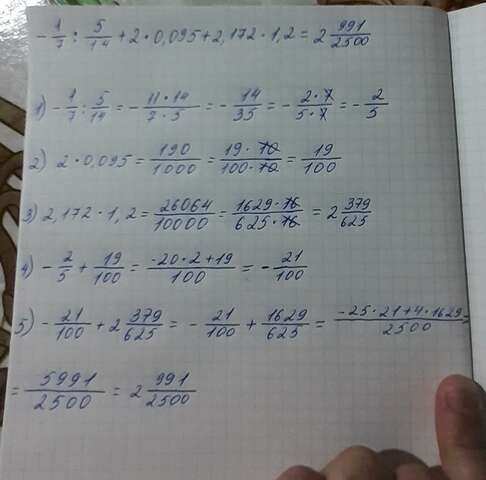 -1/7 : 5/14 + 2 · 0,095 + 2,172 · 1,2 = 2 991/2500
1) -1/7 : 5/14 = -11·14/7·5 = -14/35 = -2·7/5·7 = -2/5
2) 2 · 0,095 = 190/1000 = 19·10/100·10 = 19/100
3) 2,172 · 1,2 = 26064/10000 = 1629·16/625·16 = 2 379/625
4) -2/5 + 19/100 = -20·2+19/100 = -21/100
5) -21/100 + 2 379/625 = -21/100 + 1629/625 = -25·21+4·1629/2500 =
= 5991/2500 = 2 991/2500